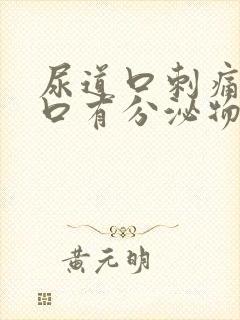 尿道口刺痛
口有分泌物
黄元明